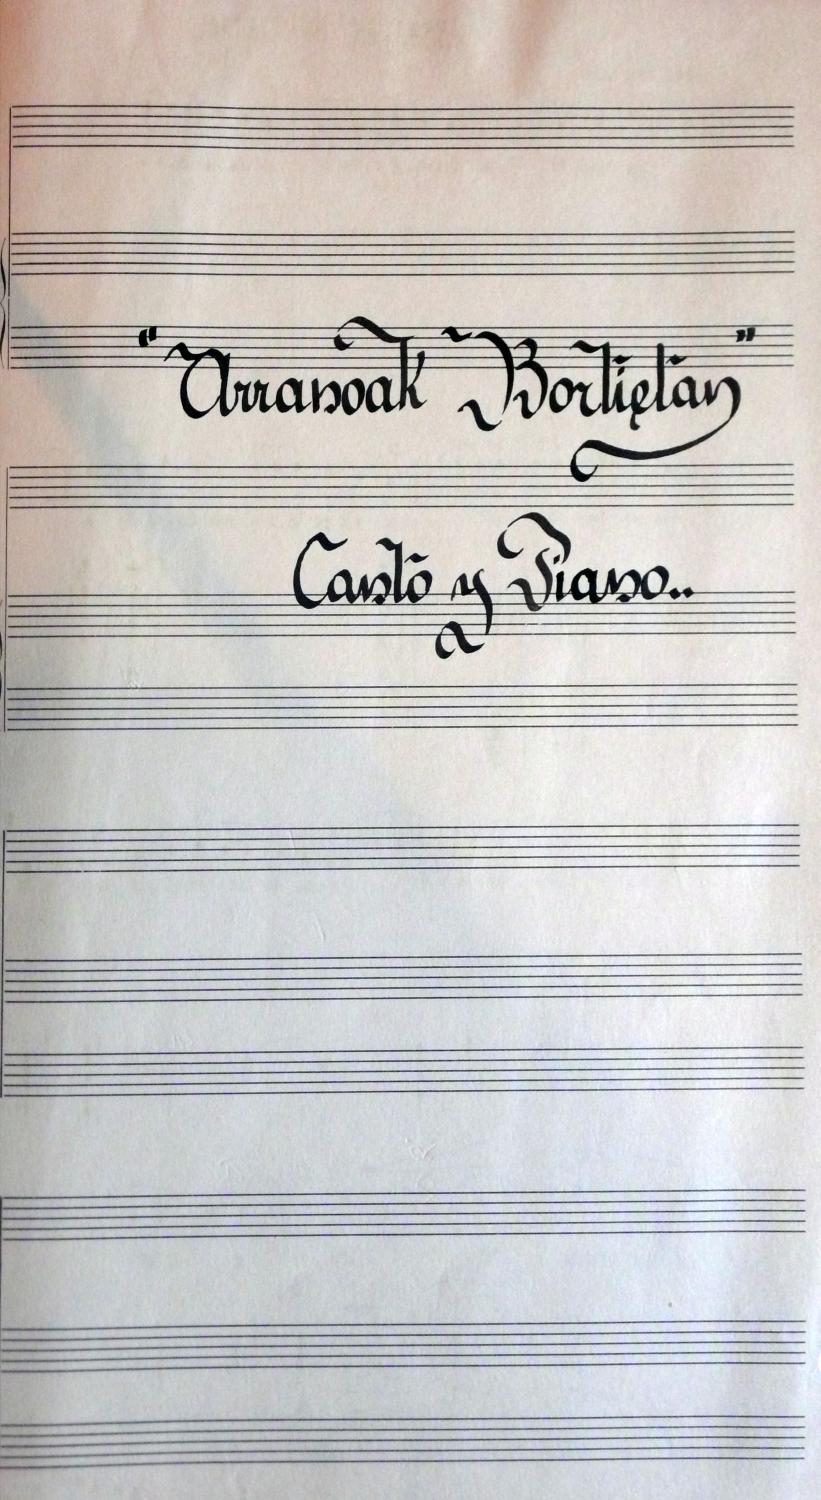 "Arranoak Bortietan"
Canto y Piano..